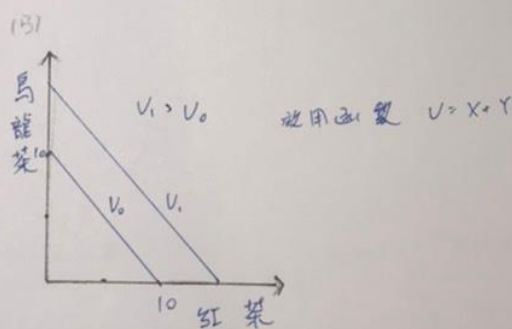 (3)
烏龍茶
10
U₁ > U₀
效用函數 U = X + Y
U₀
U₁
10
紅茶